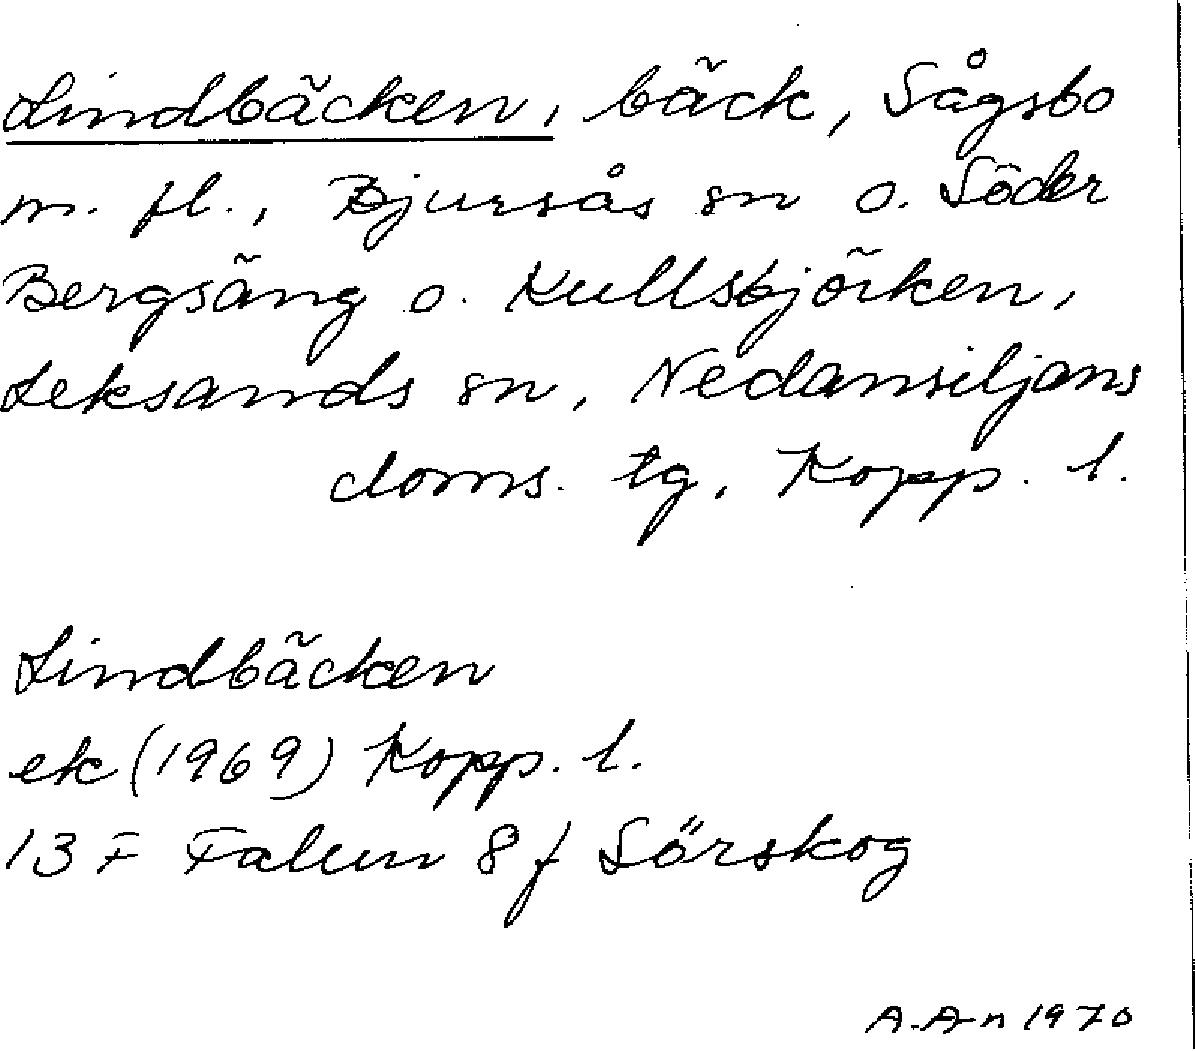 Lindbäcken, bäck, Sågsbo
m. fl., Bjursås sn o. Söder
Bergsäng o. Kullsbjörken,
Leksands sn, Nedansiljans
doms. tg, Kopp. l.
Lindbäcken
ek (1969) Kopp. l.
13 F Falun 8 f Sörskog
A. A-n 1970